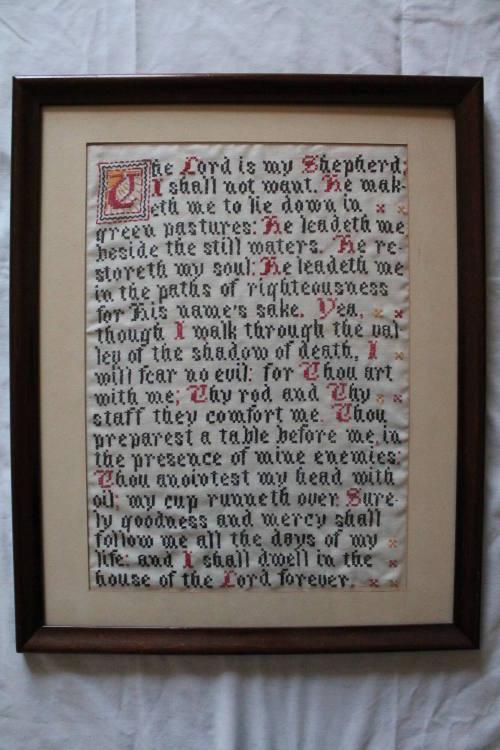 The Lord is my Shepherd;
I shall not want. He mak-
eth me to lie down in
green pastures: He leadeth me
beside the still waters. He re-
storeth my soul: He leadeth me
in the paths of righteousness
for His name's sake. Yea,
though I walk through the val
ley of the shadow of death, I
will fear no evil: for Thou art
with me; Thy rod and Thy
staff they comfort me. Thou
preparest a table before me in
the presence of mine enemies:
Thou anointest my head with
oil; my cup runneth over. Sure-
ly goodness and mercy shall
follow me all the days of my
life: and I shall dwell in the
house of the Lord forever.